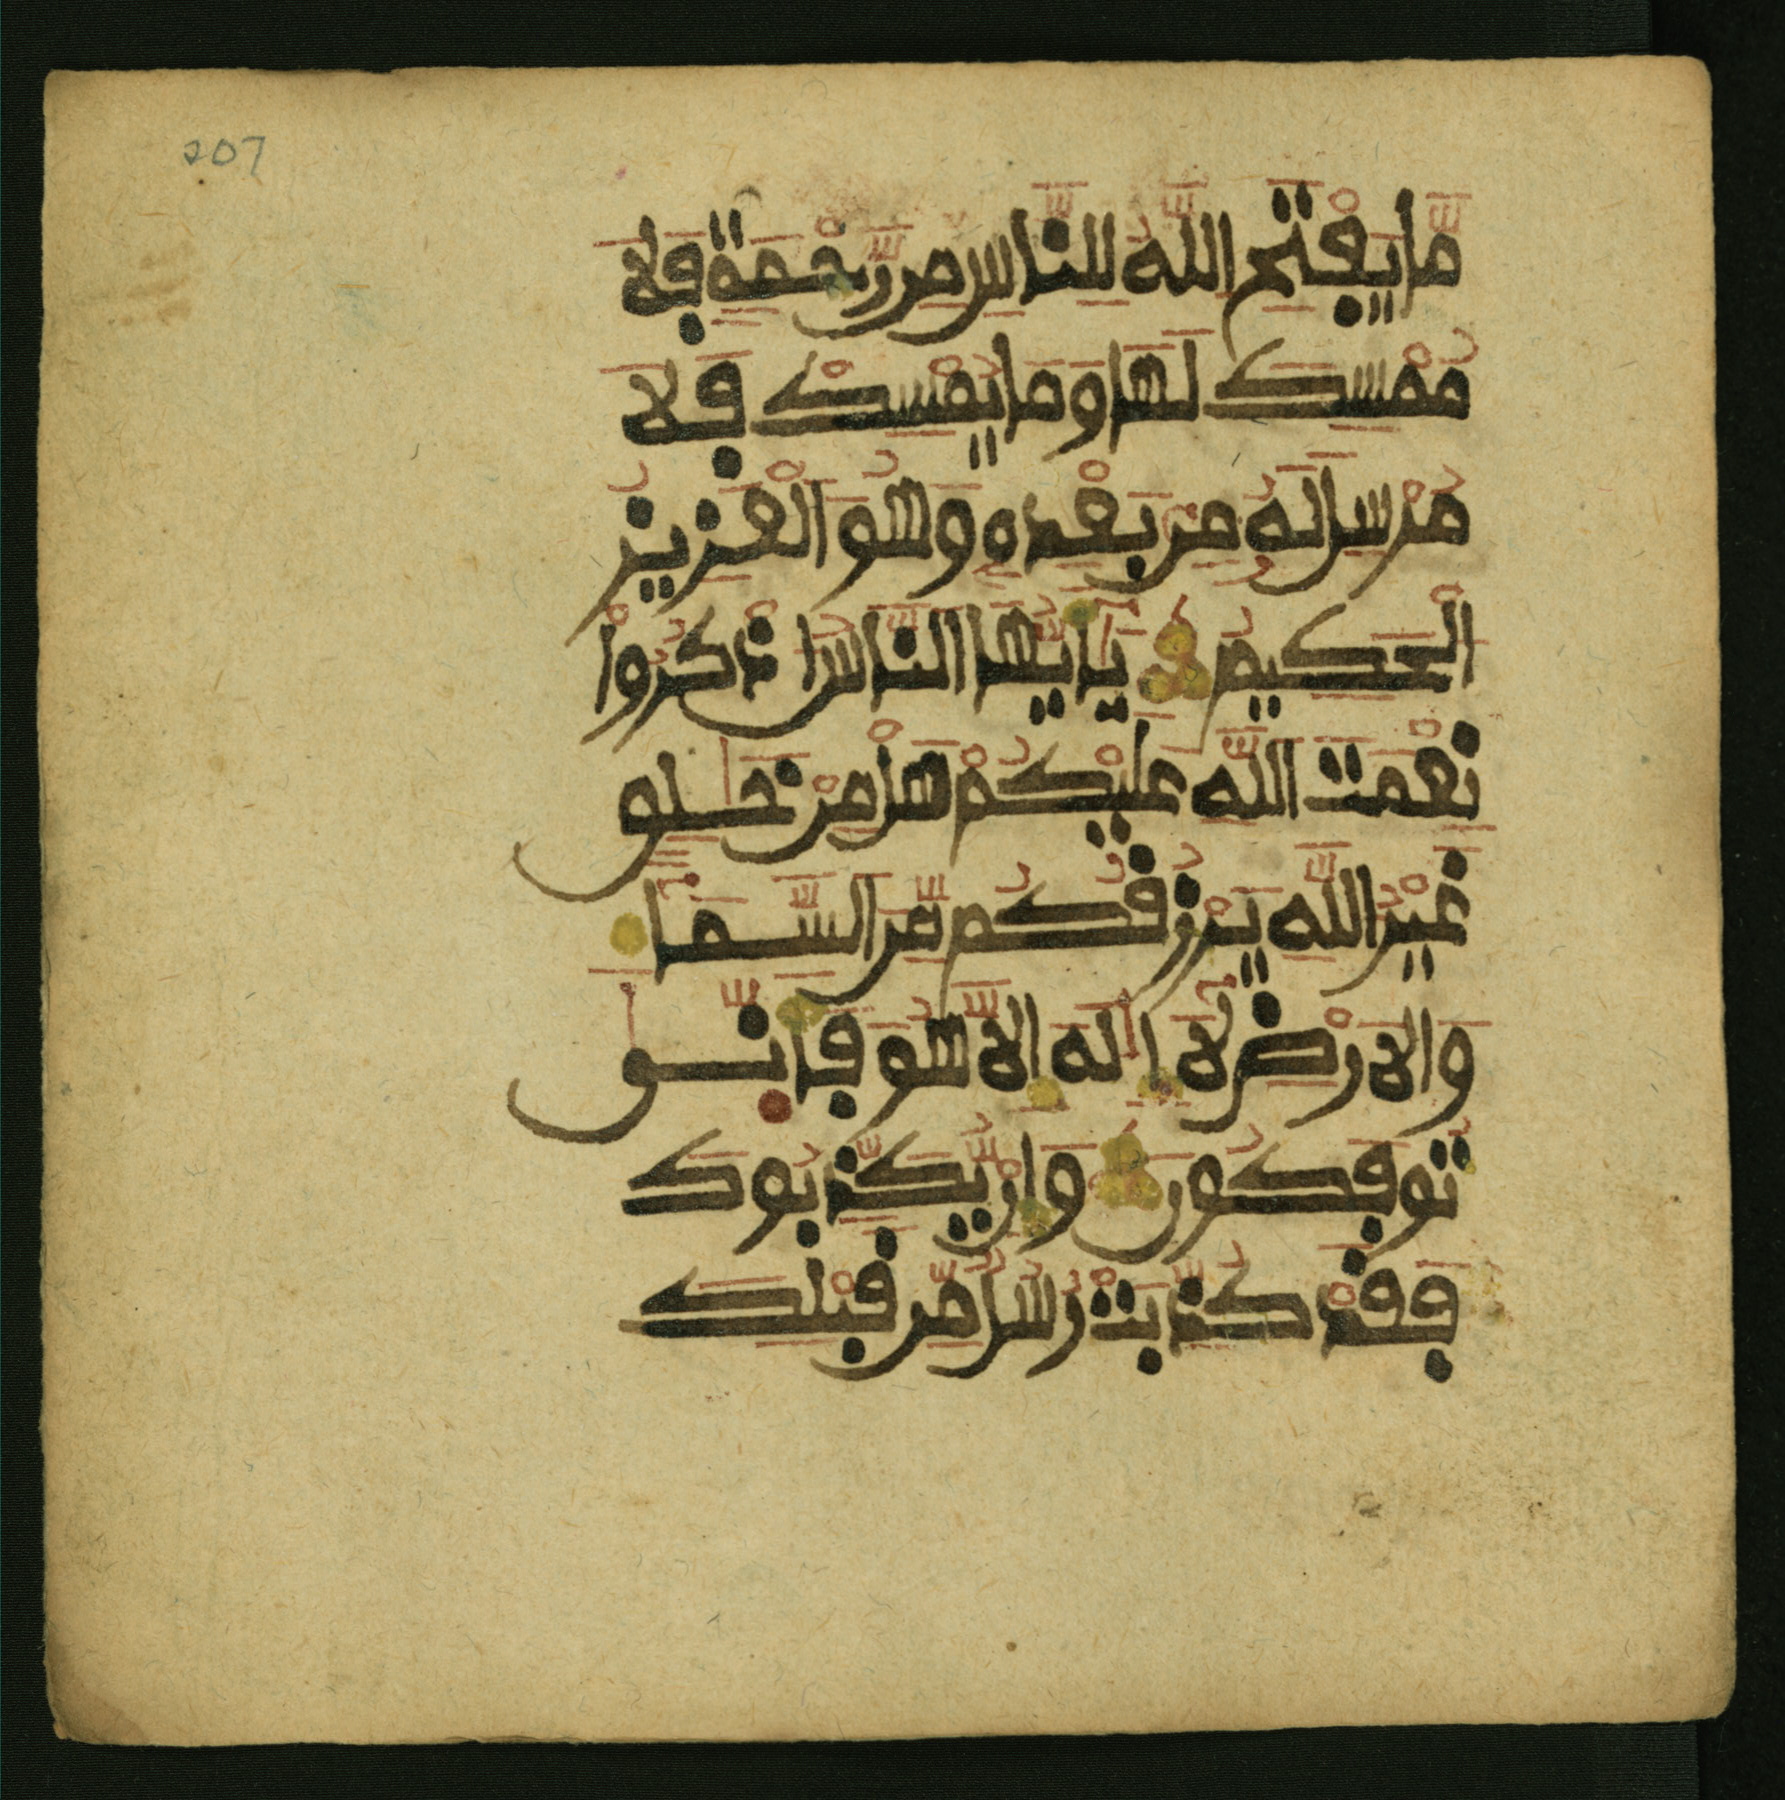 207
مَّا يَفْتَحِ اللَّهُ لِلنَّاسِ مِن رَّحْمَةٍ فَلَا
مُمْسِكَ لَهَا وَمَا يُمْسِكْ فَلَا
مُرْسِلَ لَهُ مِن بَعْدِهِ وَهُوَ الْعَزِيزُ
الْحَكِيمُ يَا أَيُّهَا النَّاسُ اذْكُرُوا
نِعْمَتَ اللَّهِ عَلَيْكُمْ هَلْ مِنْ خَالِقٍ
غَيْرُ اللَّهِ يَرْزُقُكُم مِّنَ السَّمَاءِ
وَالْأَرْضِ لَا إِلَهَ إِلَّا هُوَ فَأَنَّى
تُوفَكُونَ وَإِن يُكَذِّبُوكَ
فَقَدْ كُذِّبَتْ رُسُلٌ مِّن قَبْلِكَ